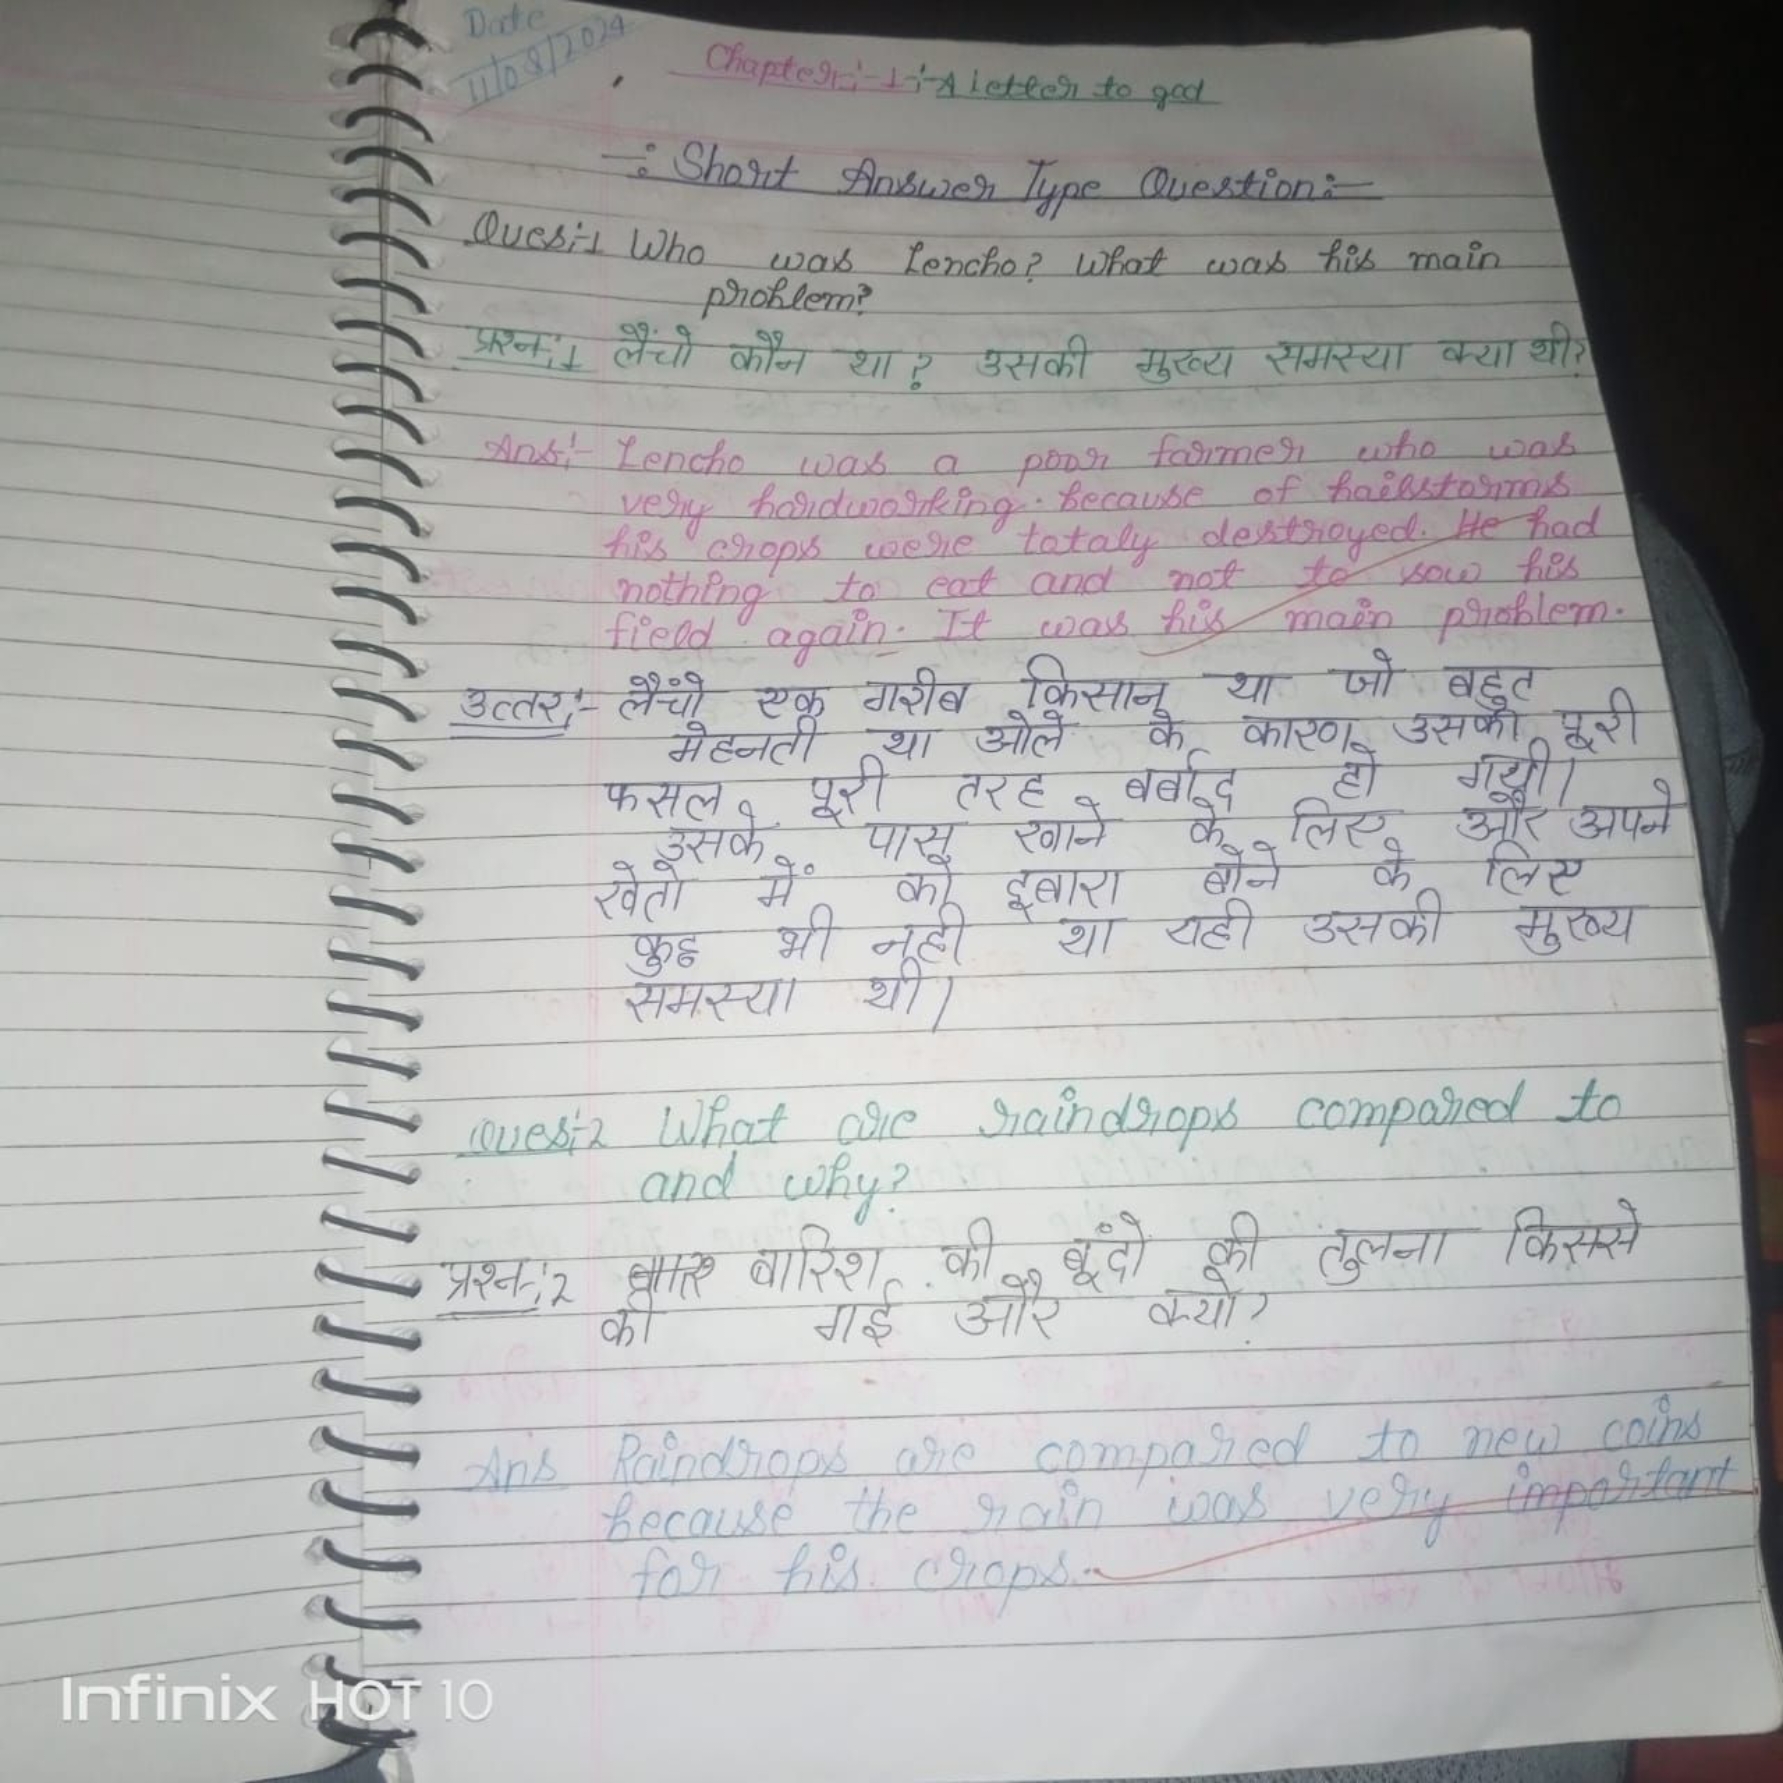 Date
11/08/2024
Chapter:-1:-A Letter to god
-: Short Answer Type Question:-
Ques:-1 Who was Lencho? What was his main
problem?
प्रश्न:-1 लैंचो कौन था? उसकी मुख्य समस्या क्या थी?
Ans:- Lencho was a poor farmer who was
very hardworking. Because of hailstorms
his crops were totaly destroyed. He had
nothing to eat and not to sow his
field again. It was his main problem.
उत्तर:- लैंचो एक गरीब किसान था जो बहुत
मेहनती था ओले के कारण उसकी पूरी
फसल पूरी तरह बर्बाद हो गयी।
उसके पास खाने के लिए और अपने
खेतो में को दुबारा बोने के लिए
कुछ भी नही था यही उसकी मुख्य
समस्या थी।
Ques:-2 What are raindrops compared to
and why?
प्रश्न:-2 बारिश की बूंदो की तुलना किससे
की गई और क्यो?
Ans Raindrops are compared to new coins
because the rain was very important
for his crops.
Infinix HOT 10